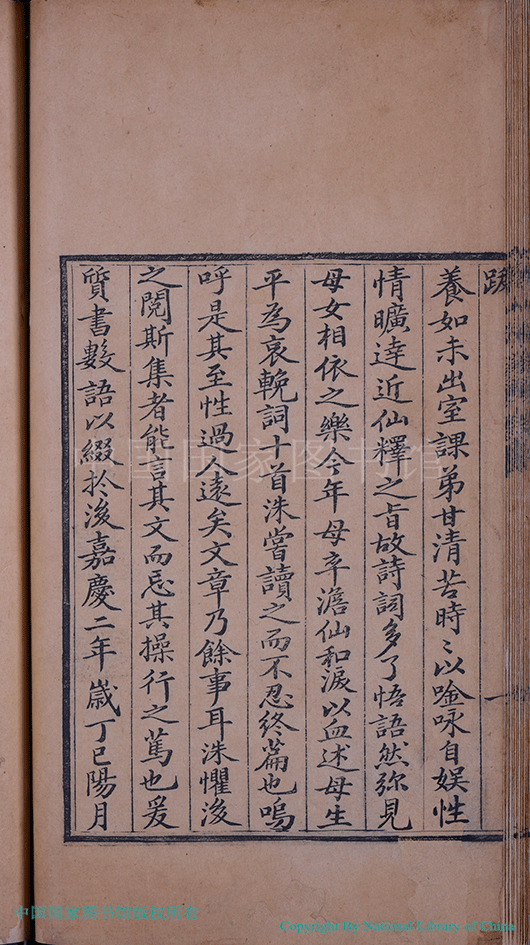 跋
一
養如未出室課弟甘清苦時〻以唫咏自娱性
情曠逹近仙釋之旨故詩詞多了悟語然弥見
母女相依之樂今年母卒澹仙和淚以血述母生
平為哀輓詞十首洙嘗讀之而不忍終篇也嗚
呼是其至性過人遠矣文章乃餘事耳洙懼後
之閲斯集者能言其文而忘其操行之篤也爰
質書數語以綴於後嘉慶二年歲丁巳陽月
中国国家图书馆
中国国家图书馆版权所有
Copyright By National Library of China